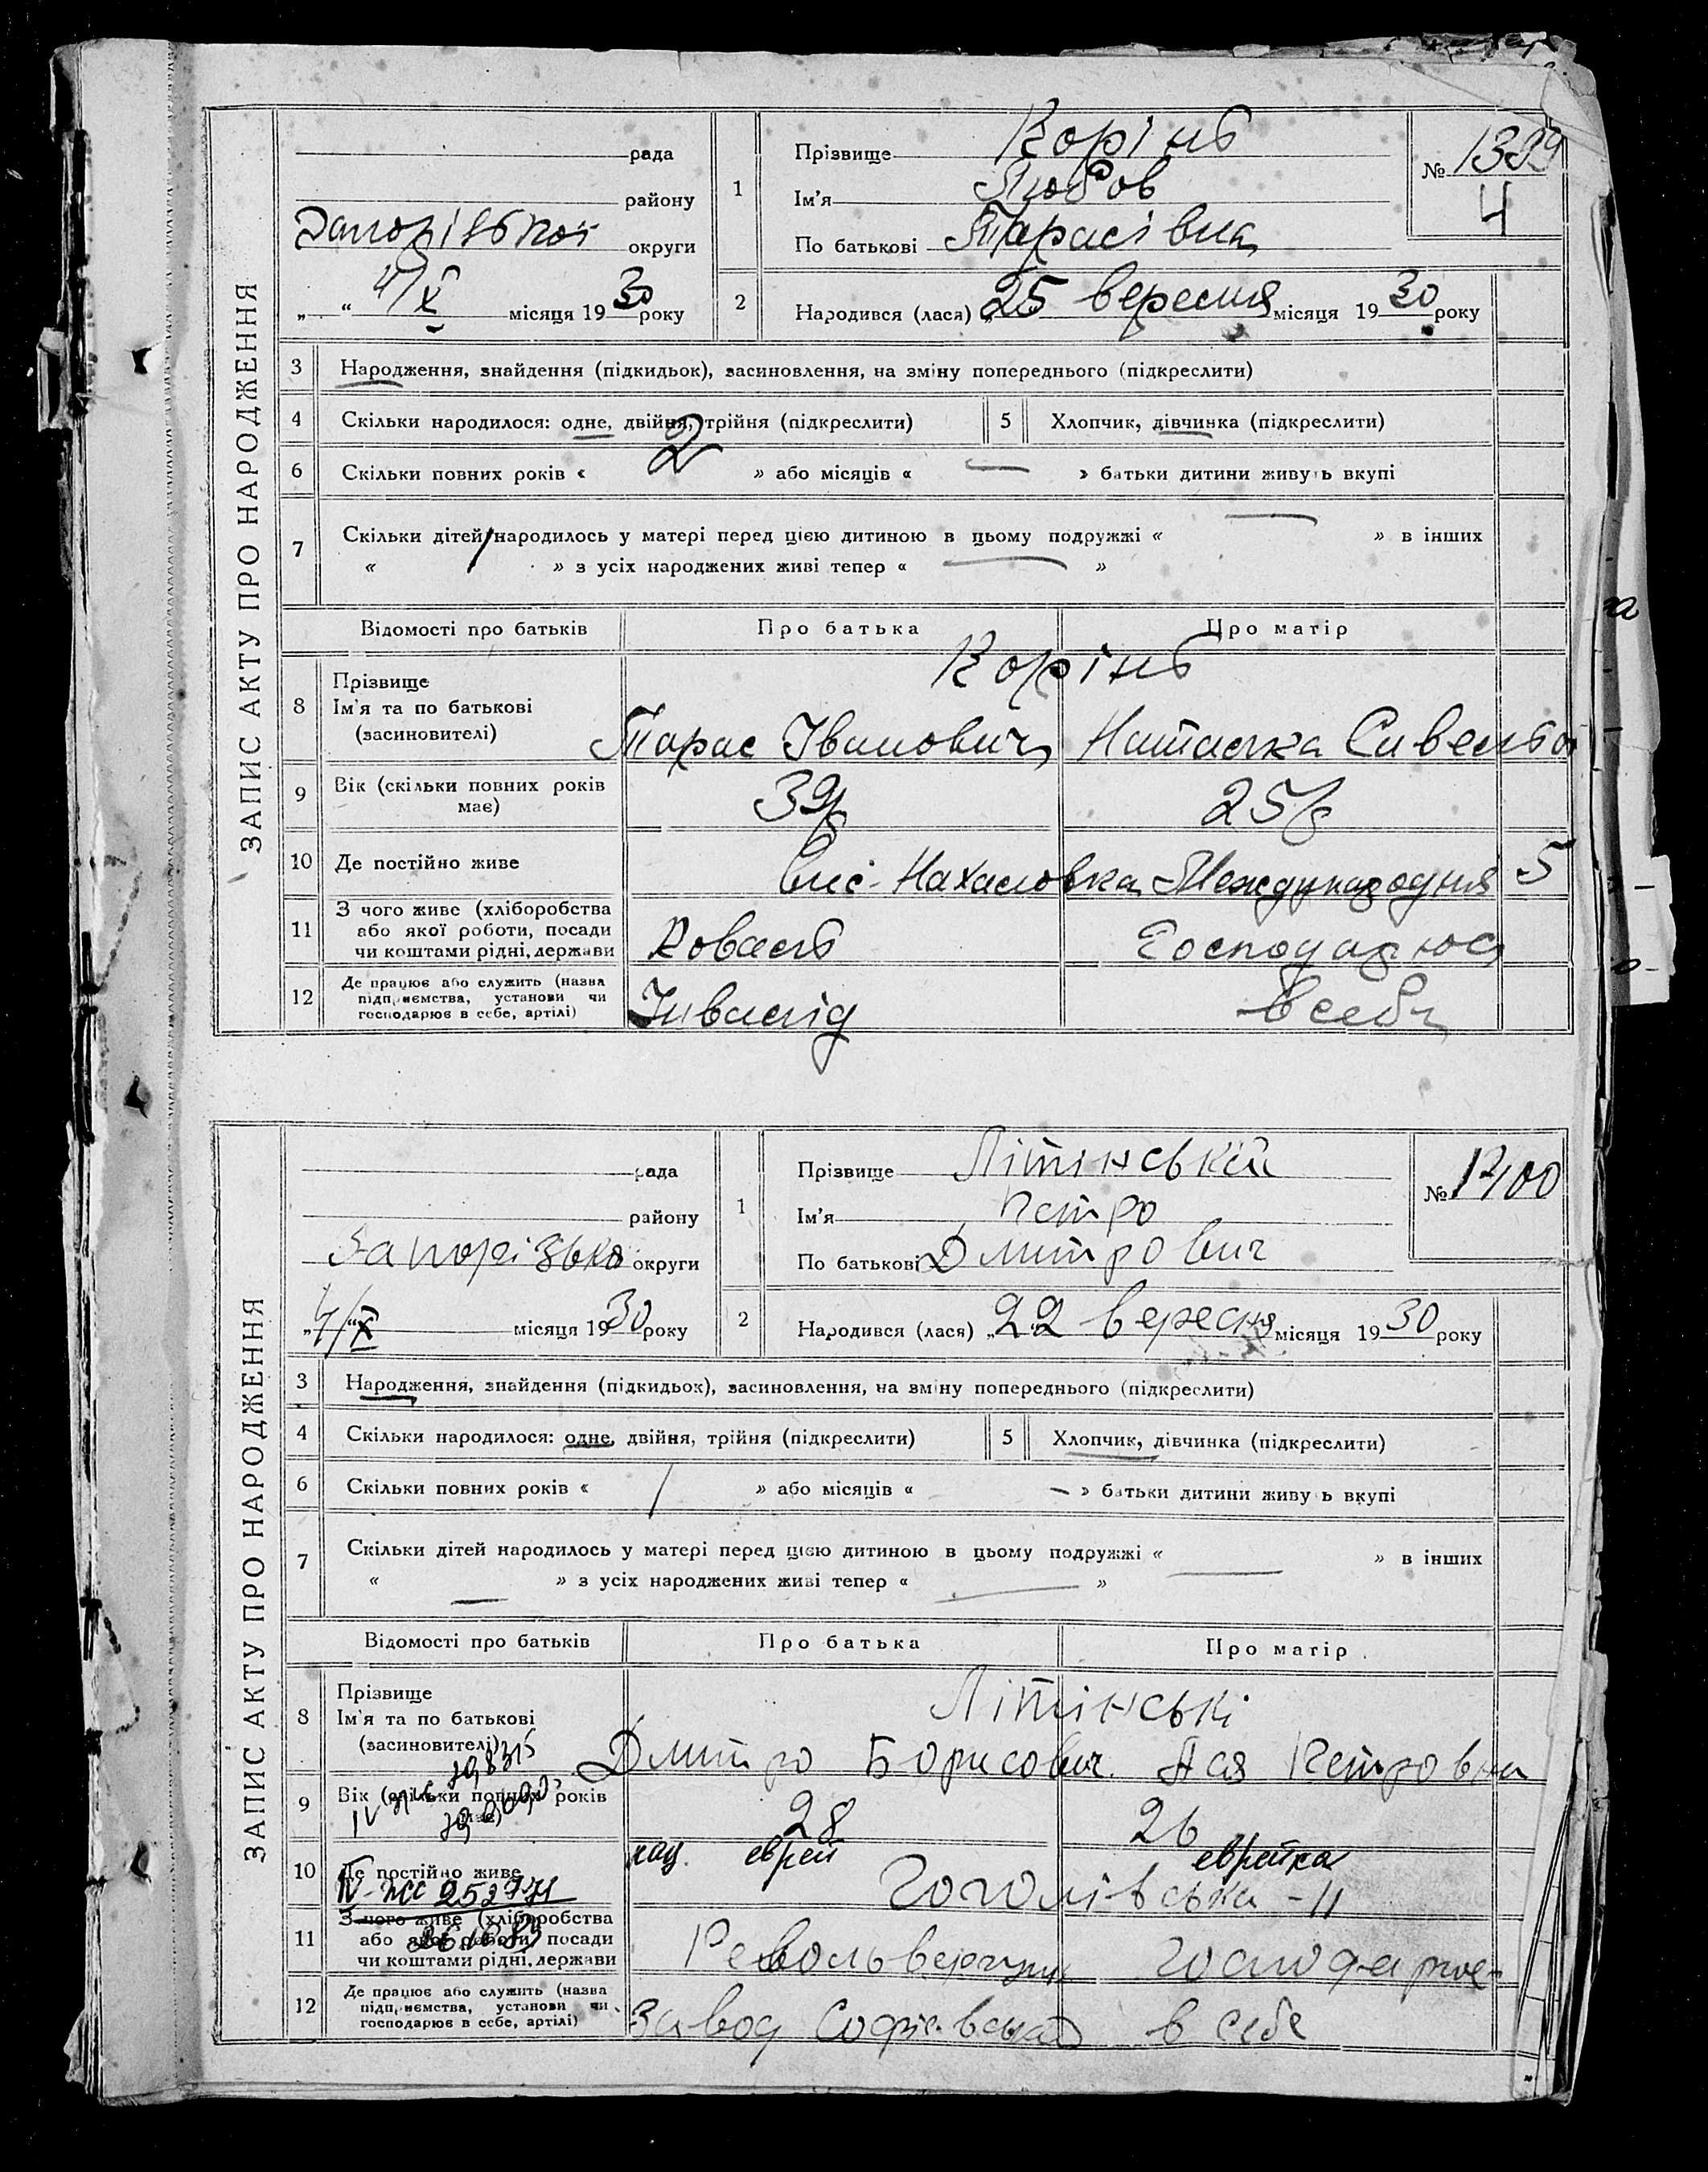 ЗАПИС АКТУ ПРО НАРОДЖЕННЯ
рада
району
округи
4/X місяця 1930 року
1
Прізвище Корінь
Ім'я Любов
По батькові Тарасівна
№ 1399
4
2
Народився (лася) „25 вересня місяця 1930 року
3 Народження, знайдення (підкидьок), засиновлення, на зміну попереднього (підкреслити)
4 Скільки народилося: одне, двійня, трійня (підкреслити)
5 Хлопчик, дівчинка (підкреслити)
6 Скільки повних років « 2 » або місяців « — » батьки дитини живуть вкупі
7 Скільки дітей народилось у матері перед цією дитиною в цьому подружжі « — » в інших
« / » з усіх народжених живі тепер « — »
Відомості про батьків Про батька Про матір
8 Прізвище
Ім'я та по батькові
(засиновителі)
Корінь
Тарас Іванович Наташка
9 Вік (скільки повних років має)
25
10 Де постійно живе
Нахаловка Международня 5
11 З чого живе (хліборобства
або якої роботи, посади
чи коштами рідні, держави
Коваль
12 Де працює або служить (назва
підприємства, установи чи
господарює в себе, артілі)
Інвалід в себе
ЗАПИС АКТУ ПРО НАРОДЖЕННЯ
рада
району
округи
4/X місяця 1930 року
1
Прізвище Літінській
Ім'я Петро
По батькові Дмитрович
№ 1400
2
Народився (лася) „22 вересня місяця 1930 року
3 Народження, знайдення (підкидьок), засиновлення, на зміну попереднього (підкреслити)
4 Скільки народилося: одне, двійня, трійня (підкреслити)
5 Хлопчик, дівчинка (підкреслити)
6 Скільки повних років « / » або місяців « — » батьки дитини живуть вкупі
7 Скільки дітей народилось у матері перед цією дитиною в цьому подружжі « — » в інших
« — » з усіх народжених живі тепер « — »
Відомості про батьків Про батька Про матір
8 Прізвище
Ім'я та по батькові
(засиновителі)
Літінські
Дмитро Борисович. Ася Петровна
9 Вік (скільки повних років має)
28 26
нац. еврей еврейка
10 Де постійно живе
Гоголівська - 11
11 З чого живе (хліборобства
або якої роботи, посади
чи коштами рідні, держави
Револьверщик
12 Де працює або служить (назва
підприємства, установи чи
господарює в себе, артілі)
Завод в себе